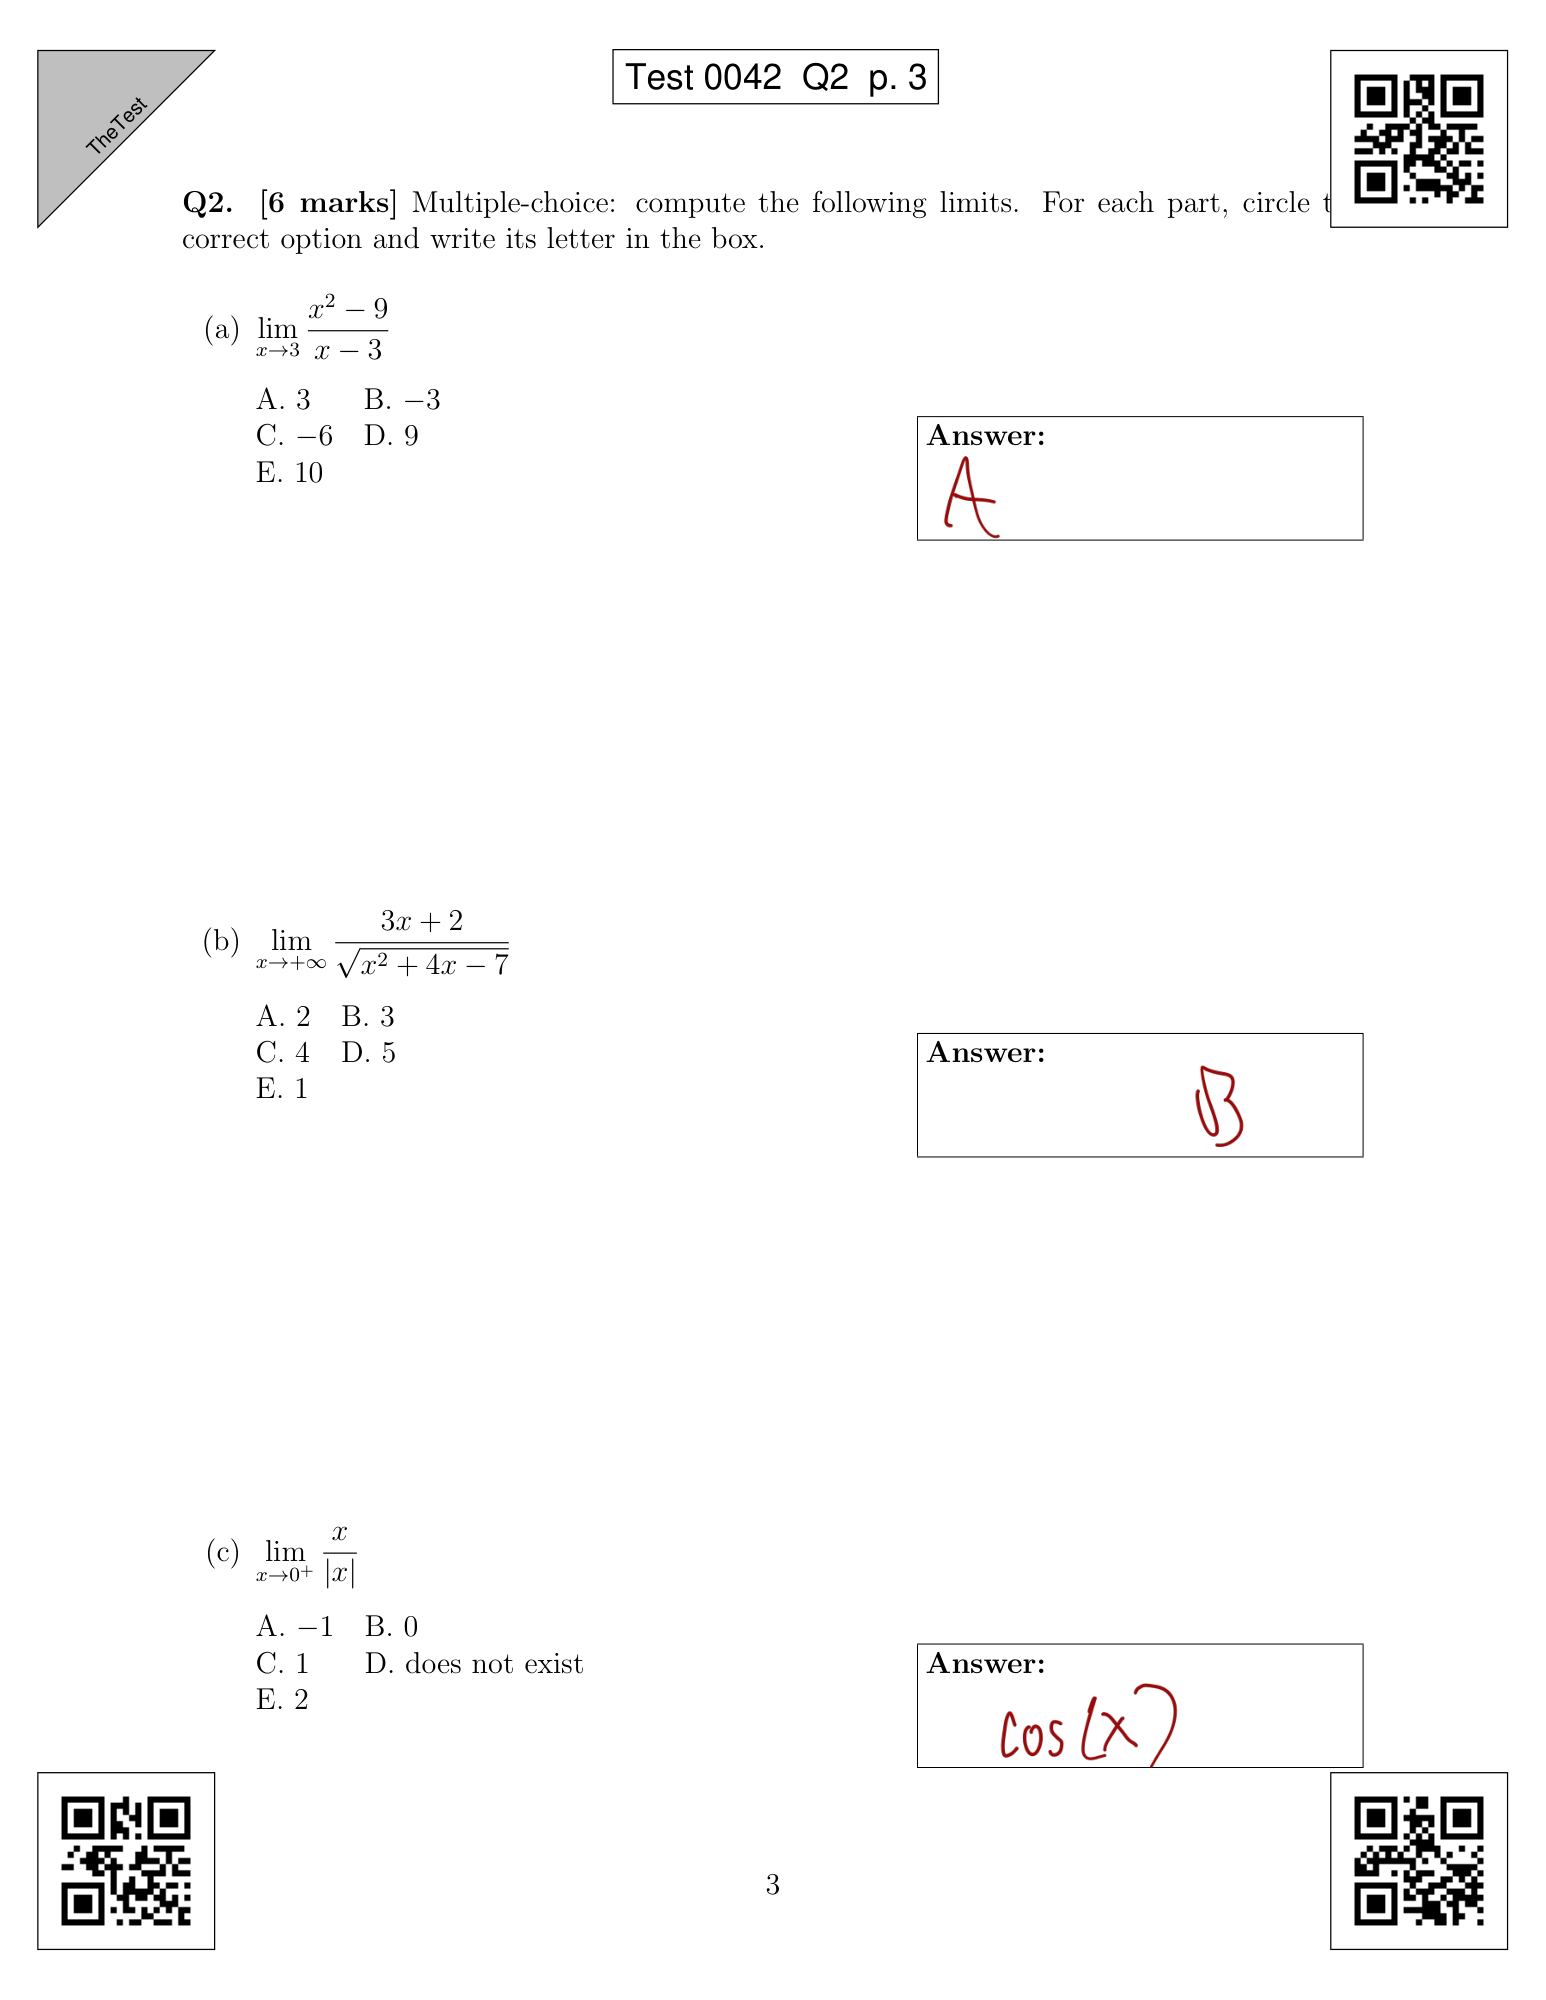 TheTest
Test 0042 Q2 p. 3
Q2. [6 marks] Multiple-choice: compute the following limits. For each part, circle t
correct option and write its letter in the box.
(a) lim x→3 (x² − 9)/(x − 3)
A. 3 B. −3
C. −6 D. 9
E. 10
Answer:
A
(b) lim x→+∞ (3x + 2)/√(x² + 4x − 7)
A. 2 B. 3
C. 4 D. 5
E. 1
Answer:
B
(c) lim x→0⁺ x/|x|
A. −1 B. 0
C. 1 D. does not exist
E. 2
Answer:
cos(x)
3